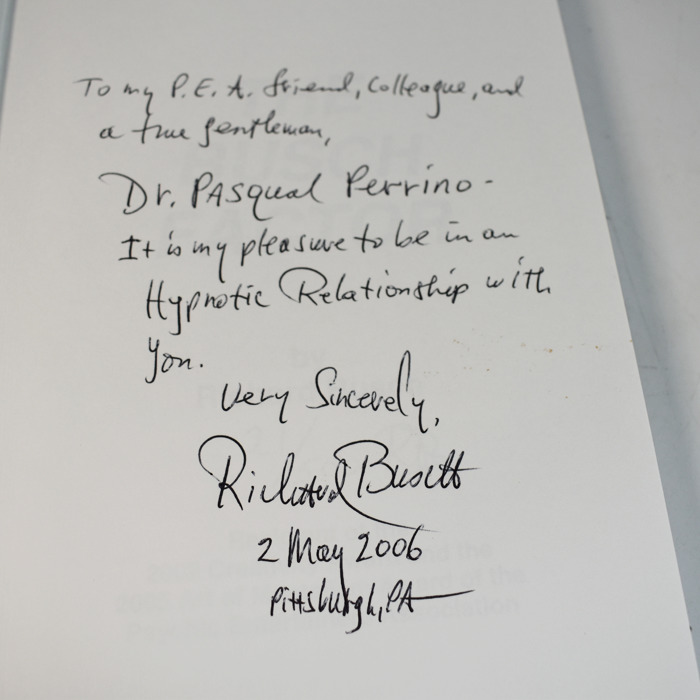 To my P.E.A. friend, Colleague, and
a true gentleman,
Dr. PASqual Perrino -
It is my pleasure to be in an
Hypnotic Relationship with
you.
Very Sincerely,
Richard
2 May 2006
Pittsburgh, PA